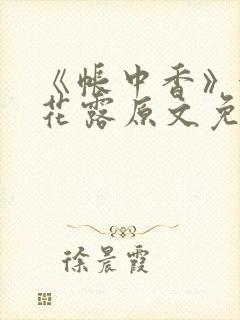 《帐中香》
花露原文免
徐晨霞